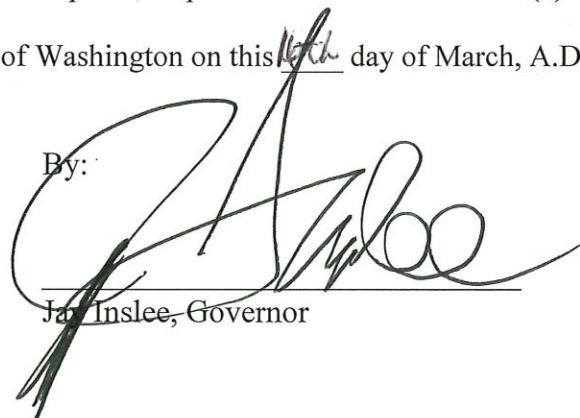 of Washington on this 16th day of March, A.D
By:
Jay Inslee, Governor